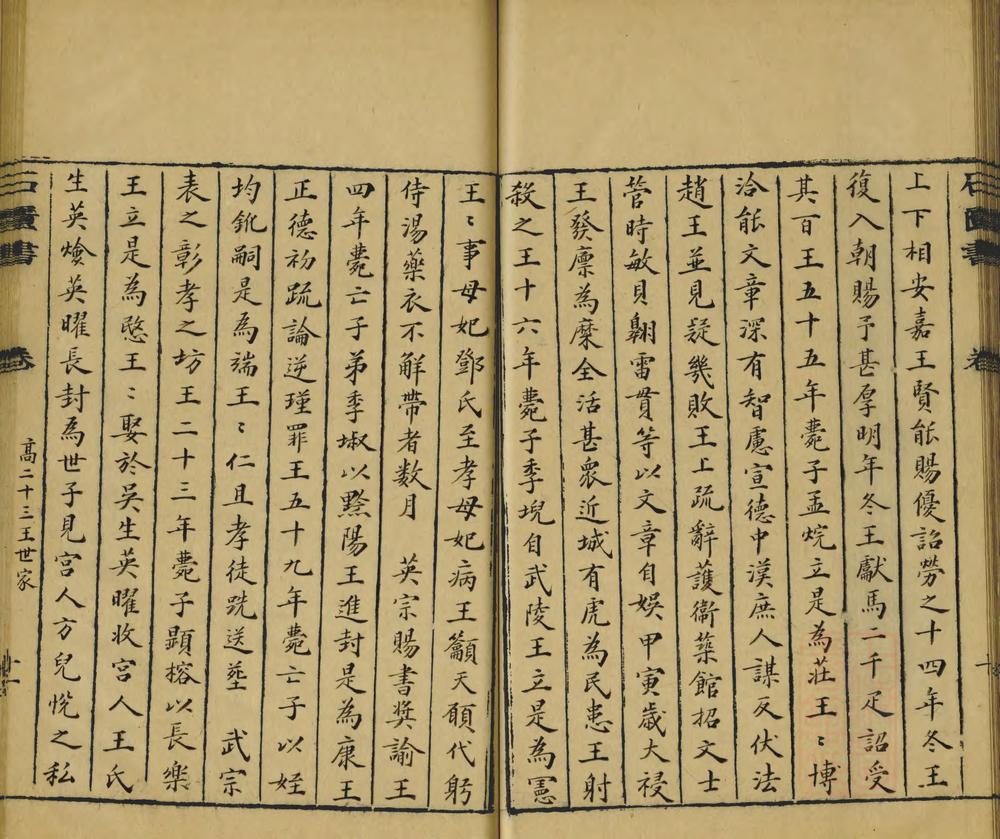 石匱書
卷
上下相安嘉王賢能賜優詔勞之十四年冬王
復入朝賜予甚厚明年冬王獻馬二千疋詔受
其百王五十五年薨子孟烷立是為莊王〻博
洽能文章深有智慮宣德中漢庶人謀反伏法
趙王並見疑幾敗王上疏辭護衞築館招文士
管時敏貝翺雷貫等以文章自娛甲寅歲大祲
王發廪為糜全活甚衆近城有虎為民患王射
殺之王十六年薨子季堄自武陵王立是為憲
王〻事母妃鄧氏至孝母妃病王籲天願代躬
侍湯藥衣不解帶者数月　英宗賜書奬諭王
四年薨亡子弟季埱以黔陽王進封是為康王
正德初疏論逆瑾罪王五十九年薨亡子以姪
均鈋嗣是為端王〻仁且孝徒跣送塟　武宗
表之彰孝之坊王二十三年薨子顕榕以長樂
王立是為愍王〻娶於吳生英曜收宫人王氏
生英燫英曜長封為世子見宫人方兒悅之私
石匱書
卷
高二十三王世家